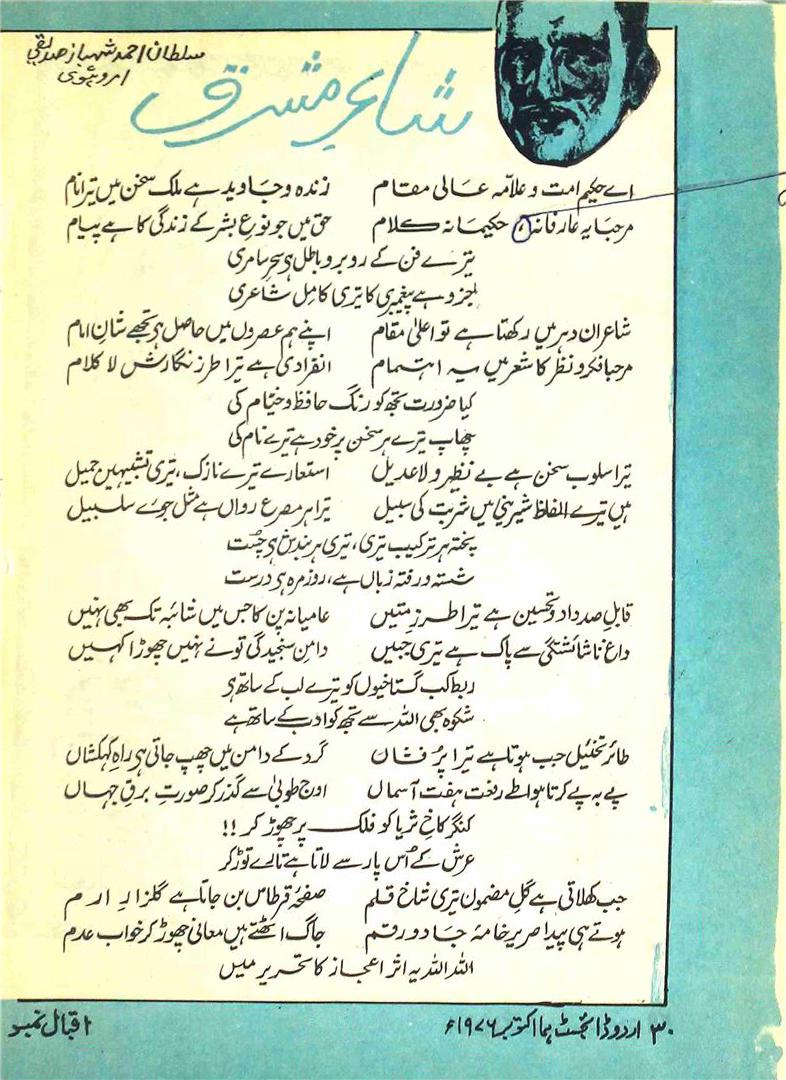 سلطان احمد شہباز صدیقی
امروہوی
شاعرِ مشرق
اے حکیمِ امت و علامّہ عالی مقام زندہ و جاوید ہے ملک سخن میں تیرا نام
مرحبا یہ عارفانہ، حکیمانہ کلام حق میں جو نوعِ بشر کے زندگی کا ہے پیام
تیرے فن کے روبرو باطل ہی سحرِ سامری
جزو ہے پیغمبری کا تیری کامِل شاعری
شاعران دہر میں رکھتا ہے تو اعلیٰ مقام اپنے ہم عصروں میں حاصل ہی تجھے شانِ امام
مرحبا فکر و نظر کا شعر میں یہ اہتمام انفرادی ہے ترا طرز نگارش لا کلام
کیا ضرورت تجھ کو رنگ حافظ و خیّام کی
چھاپ تیرے ہر سخن پر خود ہے تیرے نام کی
تیرا سلوب سخن ہے بے نظیر و لا عدیل استعارے تیرے نازک، تیری تشبیہیں جمیل
ہیں تیرے الفاظ شیرینی میں شربت کی سبیل تیرا ہر مصرع رواں ہے مثل جوے سلسبیل
پختہ ہر ترکیب تیری، تیری ہر بندش ہی چُست
شستہ و رفتہ زباں ہے، روزمرہ ہی درست
قابلِ صد داد و تحسین ہے تیرا طرز متیں عامیانہ پن کا جس میں شائبہ تک بھی نہیں
داغ ناشائشتگی سے پاک ہے تیری جبیں دامنِ سنجیدگی تو نے نہیں چھوڑا کہیں
ربط کب گستاخیوں کو تیرے لب کے ساتھ ہی
شکوہ بھی اللہ سے تجھ کو ادب کے ساتھ ہے
طائر تخئیل جب ہوتا ہے تیرا پر فشاں گرد کے دامن میں چھپ جاتی ہی راہِ کہکشاں
پے بہ پے کرتا ہوا طے رفعت ہفت آسماں اوج طوبیٰ سے گذر کر صورتِ برقِ جہاں
کنگر کاخِ ثریا کو فلک پر چھوڑ کر !!
عرش کے اُس پار سے لاتا ہے تارے توڑ کر
جب کھلاتی ہے گلِ مضمون تیری شاخ قلم صفحۂ قرطاس بن جاتا ہے گلزارِ ارم
ہوتے ہی پیدا صریرِ خامۂ جادو رقم جاگ اٹھتے ہیں معانی چھوڑ کر خواب عدم
اللہ اللہ یہ اثر اعجاز کا تحریر میں
۳۰ اردو ڈائجسٹ ہما اکتوبر ۱۹۷۶ء اقبال نمبر